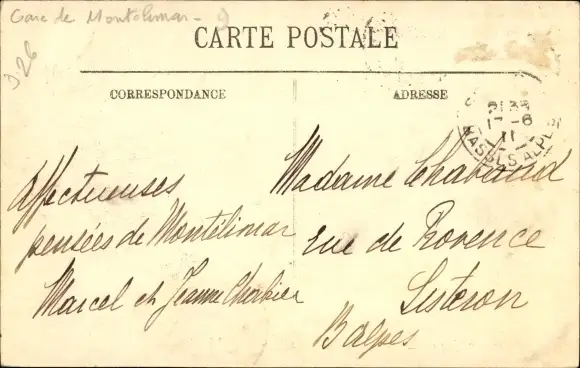 Gare de Montélimar -
326
CARTE POSTALE
CORRESPONDANCE
ADRESSE
21 35
17 - 6
11
BASSES ALPES
Affectueuses
pensées de Montélimar
Marcel et Jeanne
Madame Chabaud
rue de Provence
Sisteron
B alpes